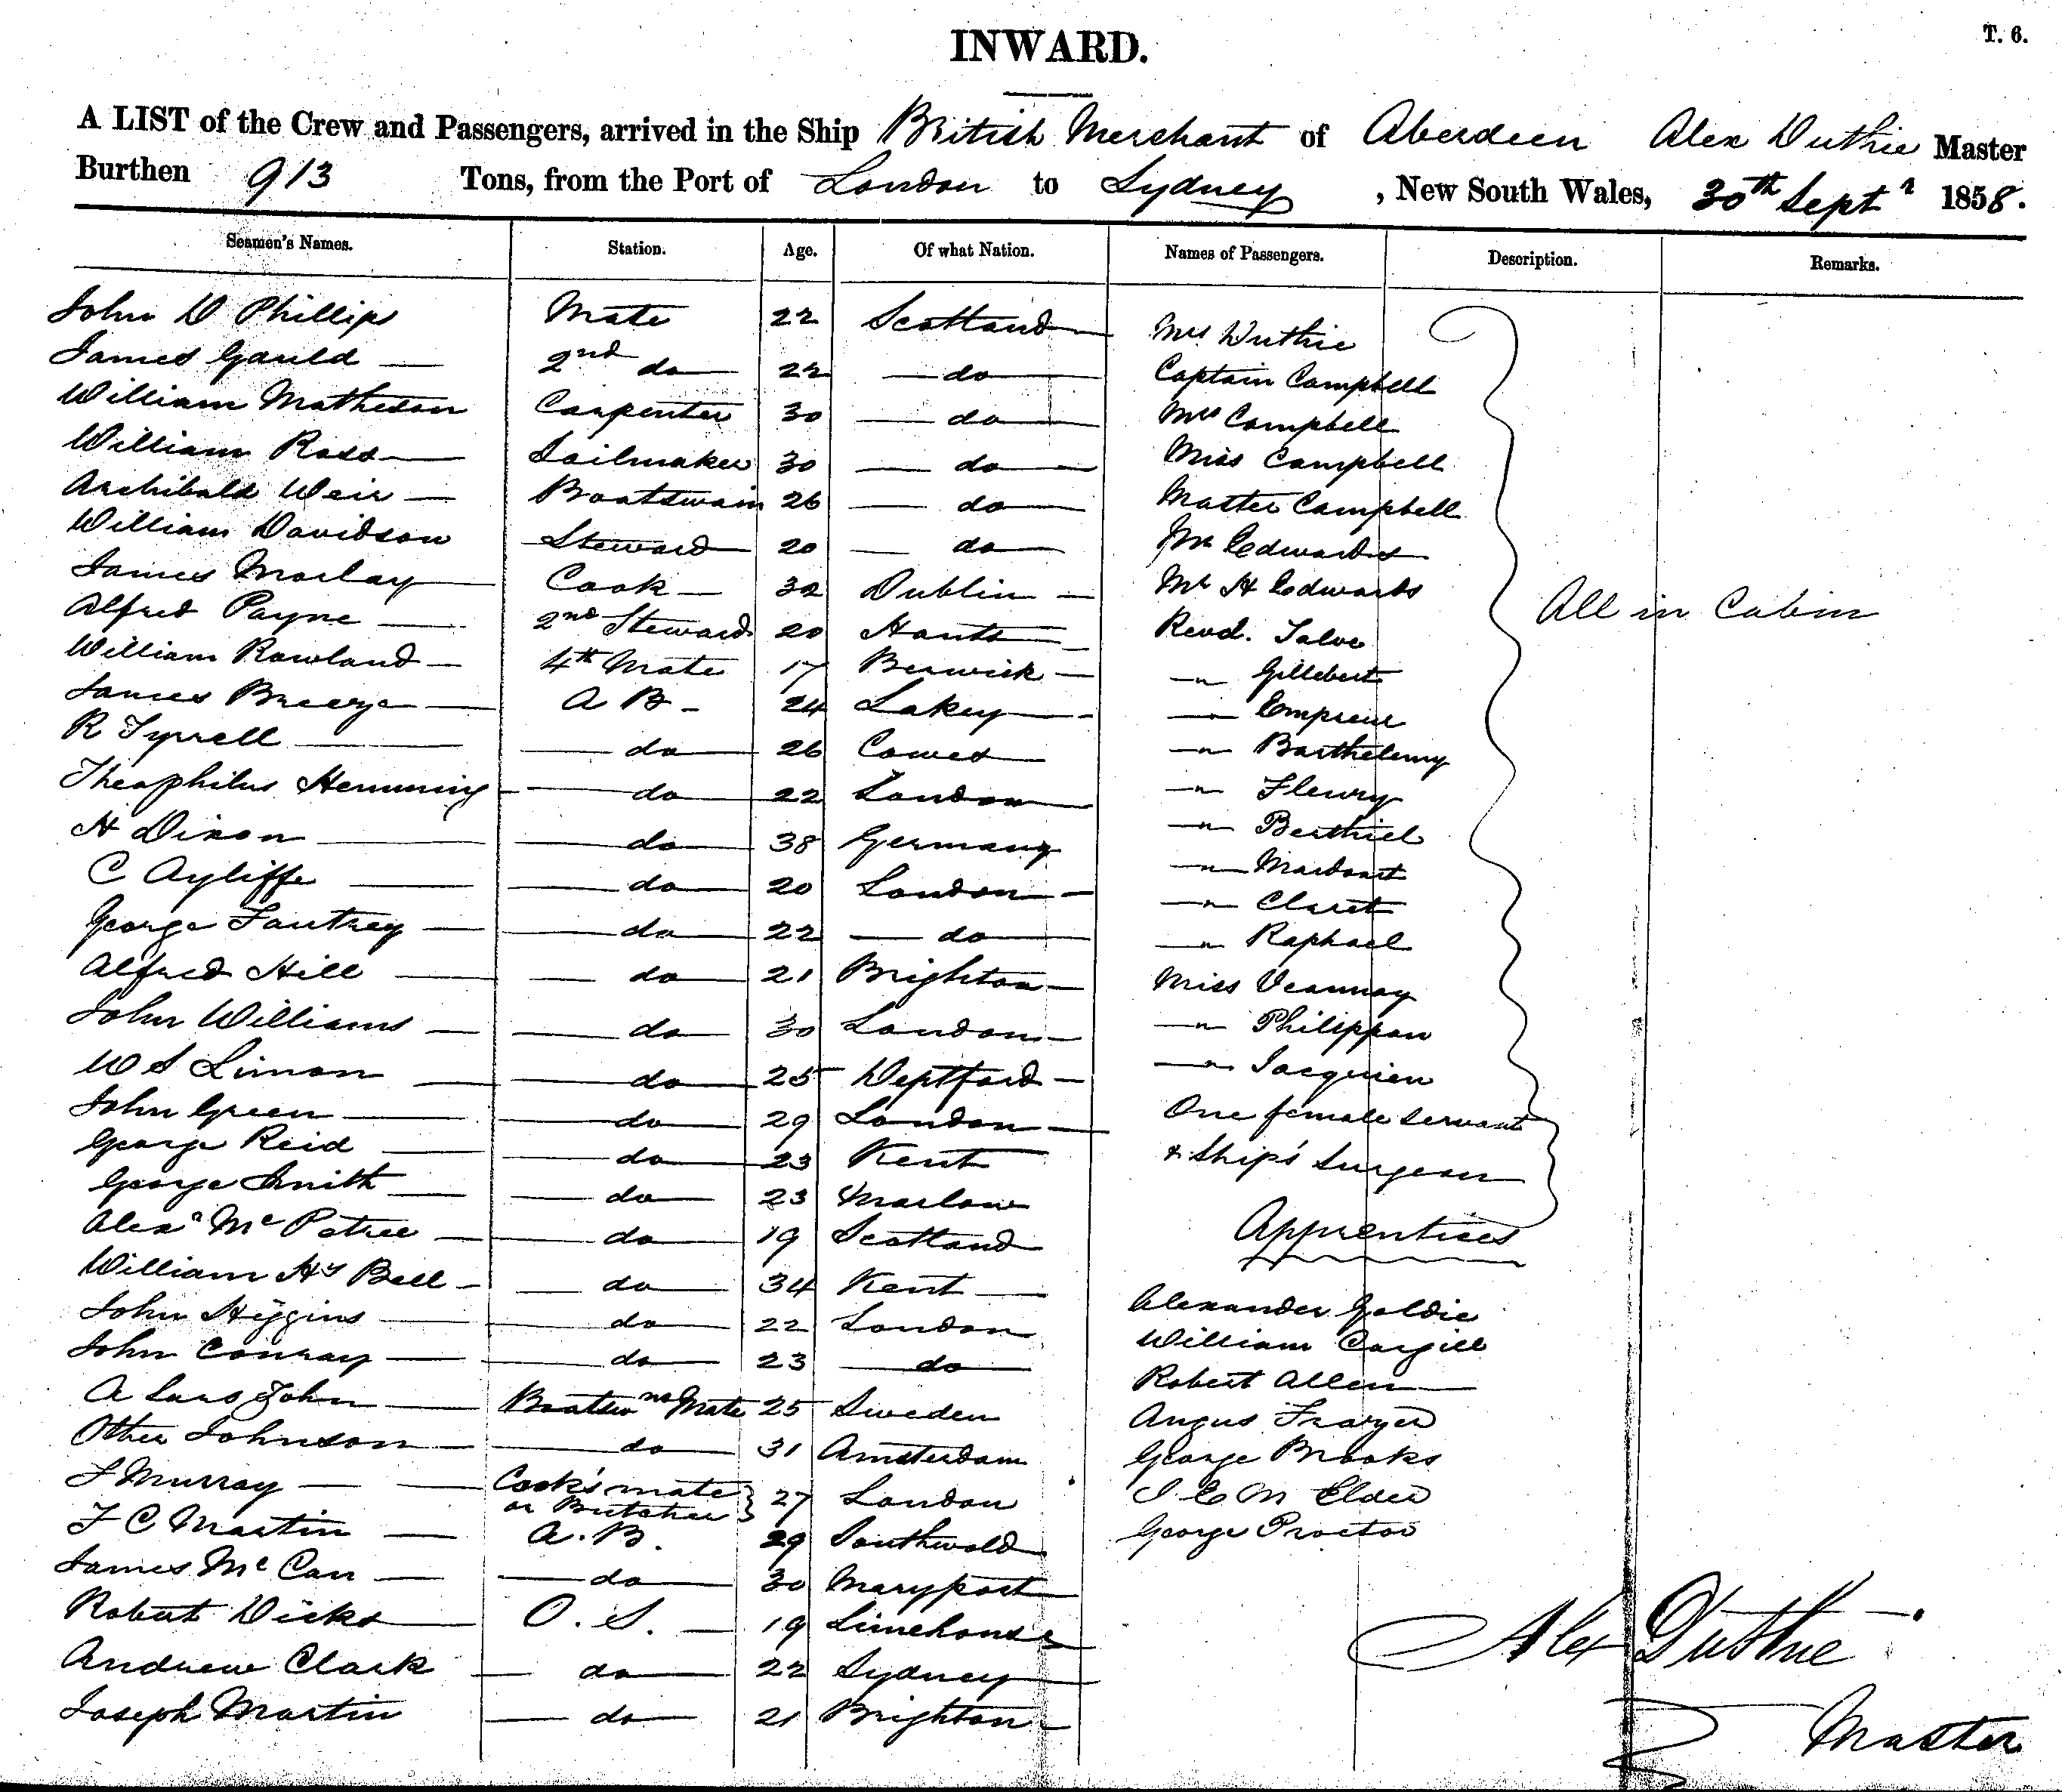 T. 6.
INWARD.
A LIST of the Crew and Passengers, arrived in the Ship British Merchant of Aberdeen Alex Duthie Master
Burthen 913 Tons, from the Port of London to Sydney, New South Wales, 30th Septr 1858.
Seamen's Names. Station. Age. Of what Nation. Names of Passengers. Description. Remarks.
John D Phillips Mate 22 Scotland Mrs Duthie
James Gauld 2nd do 22 do Captain Campbell
William Matheson Carpenter 30 do Mrs Campbell
William Ross Sailmaker 30 do Miss Campbell
Archibald Weir Boatswain 26 do Master Campbell
William Davidson Steward 20 do Mr Edwards
James Morlay Cook 32 Dublin Mr H Edwards All in Cabin
Alfred Payne 2nd Steward 20 Hants Revd. Salve
William Rowland 4th Mate 17 Berwick " Gillebert
James Breeze A B 24 Lakey " Empreur
R Tyrrell do 26 Cowes " Barthelemy
Theophilus Hemming do 22 London " Fleury
H Dixon do 38 Germany " Berthiel
C Ayliffe do 20 London " Mardonet
George Fautrey do 22 do " Claret
" Raphael
Alfred Hill do 21 Brighton Miss Veannay
John Williams do 30 London " Philippon
W S Limon do 25 Deptford " Jacquien
John Green do 29 London One female servant
George Reid do 23 Kent & Ship's Surgeon
George Smith do 23 Marlow
Alexr Mc Petree do 19 Scotland Apprentices
William Hy Bell do 34 Kent Alexander Goldie
John Higgins do 22 London William Cargill
John Conway do 23 do Robert Allen
A Lars John Boatswns Mate 25 Sweden Angus Frazer
Other Johnson do 31 Amsterdam George Brooks
F Murray Cook's mate or Butcher 27 London J E M Elder
F C Martin A. B. 29 Southwold George Proctor
James Mc Can do 30 Maryport
Robert Dicks O. S. 19 Limehouse Alex Duthie
Andrew Clark do 22 Sydney
Joseph Martin do 21 Brighton Master